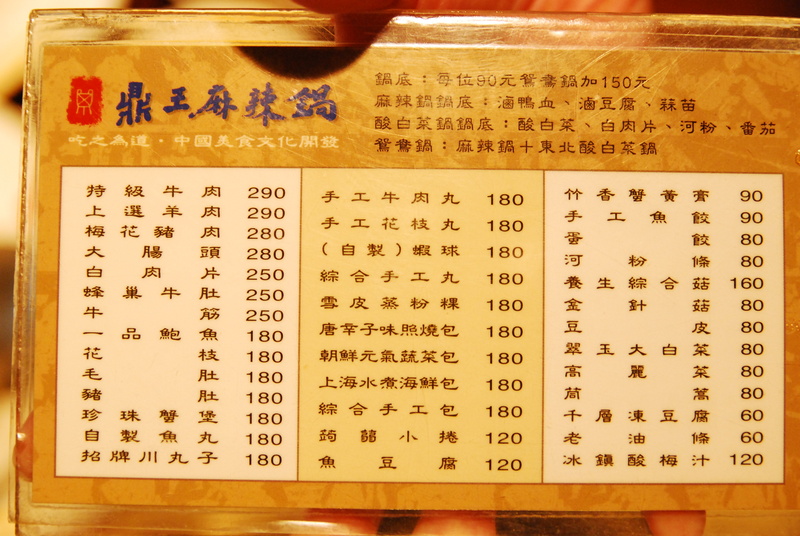 鼎王麻辣鍋
吃之為道・中國美食文化開發
鍋底：每位90元鴛鴦鍋加150元
麻辣鍋鍋底：滷鴨血、滷豆腐、蒜苗
酸白菜鍋鍋底：酸白菜、白肉片、河粉、番茄
鴛鴦鍋：麻辣鍋＋東北酸白菜鍋
特級牛肉 290
上選羊肉 290
梅花豬肉 280
大腸頭 280
白肉片 250
蜂巢牛肚 250
牛筋 250
一品鮑魚 180
花枝 180
毛肚 180
豬肚 180
珍珠蟹堡 180
自製魚丸 180
招牌川丸子 180
手工牛肉丸 180
手工花枝丸 180
（自製）蝦球 180
綜合手工丸 180
雪皮蒸粉粿 180
唐辛子味照燒包 180
朝鮮元氣蔬菜包 180
上海水煮海鮮包 180
綜合手工包 180
蒟蒻小捲 120
魚豆腐 120
竹香蟹黃膏 90
手工魚餃 90
蛋餃 80
河粉條 80
養生綜合菇 160
金針菇 80
豆皮 80
翠玉大白菜 80
高麗菜 80
茼萵 80
千層凍豆腐 60
老油條 60
冰鎮酸梅汁 120